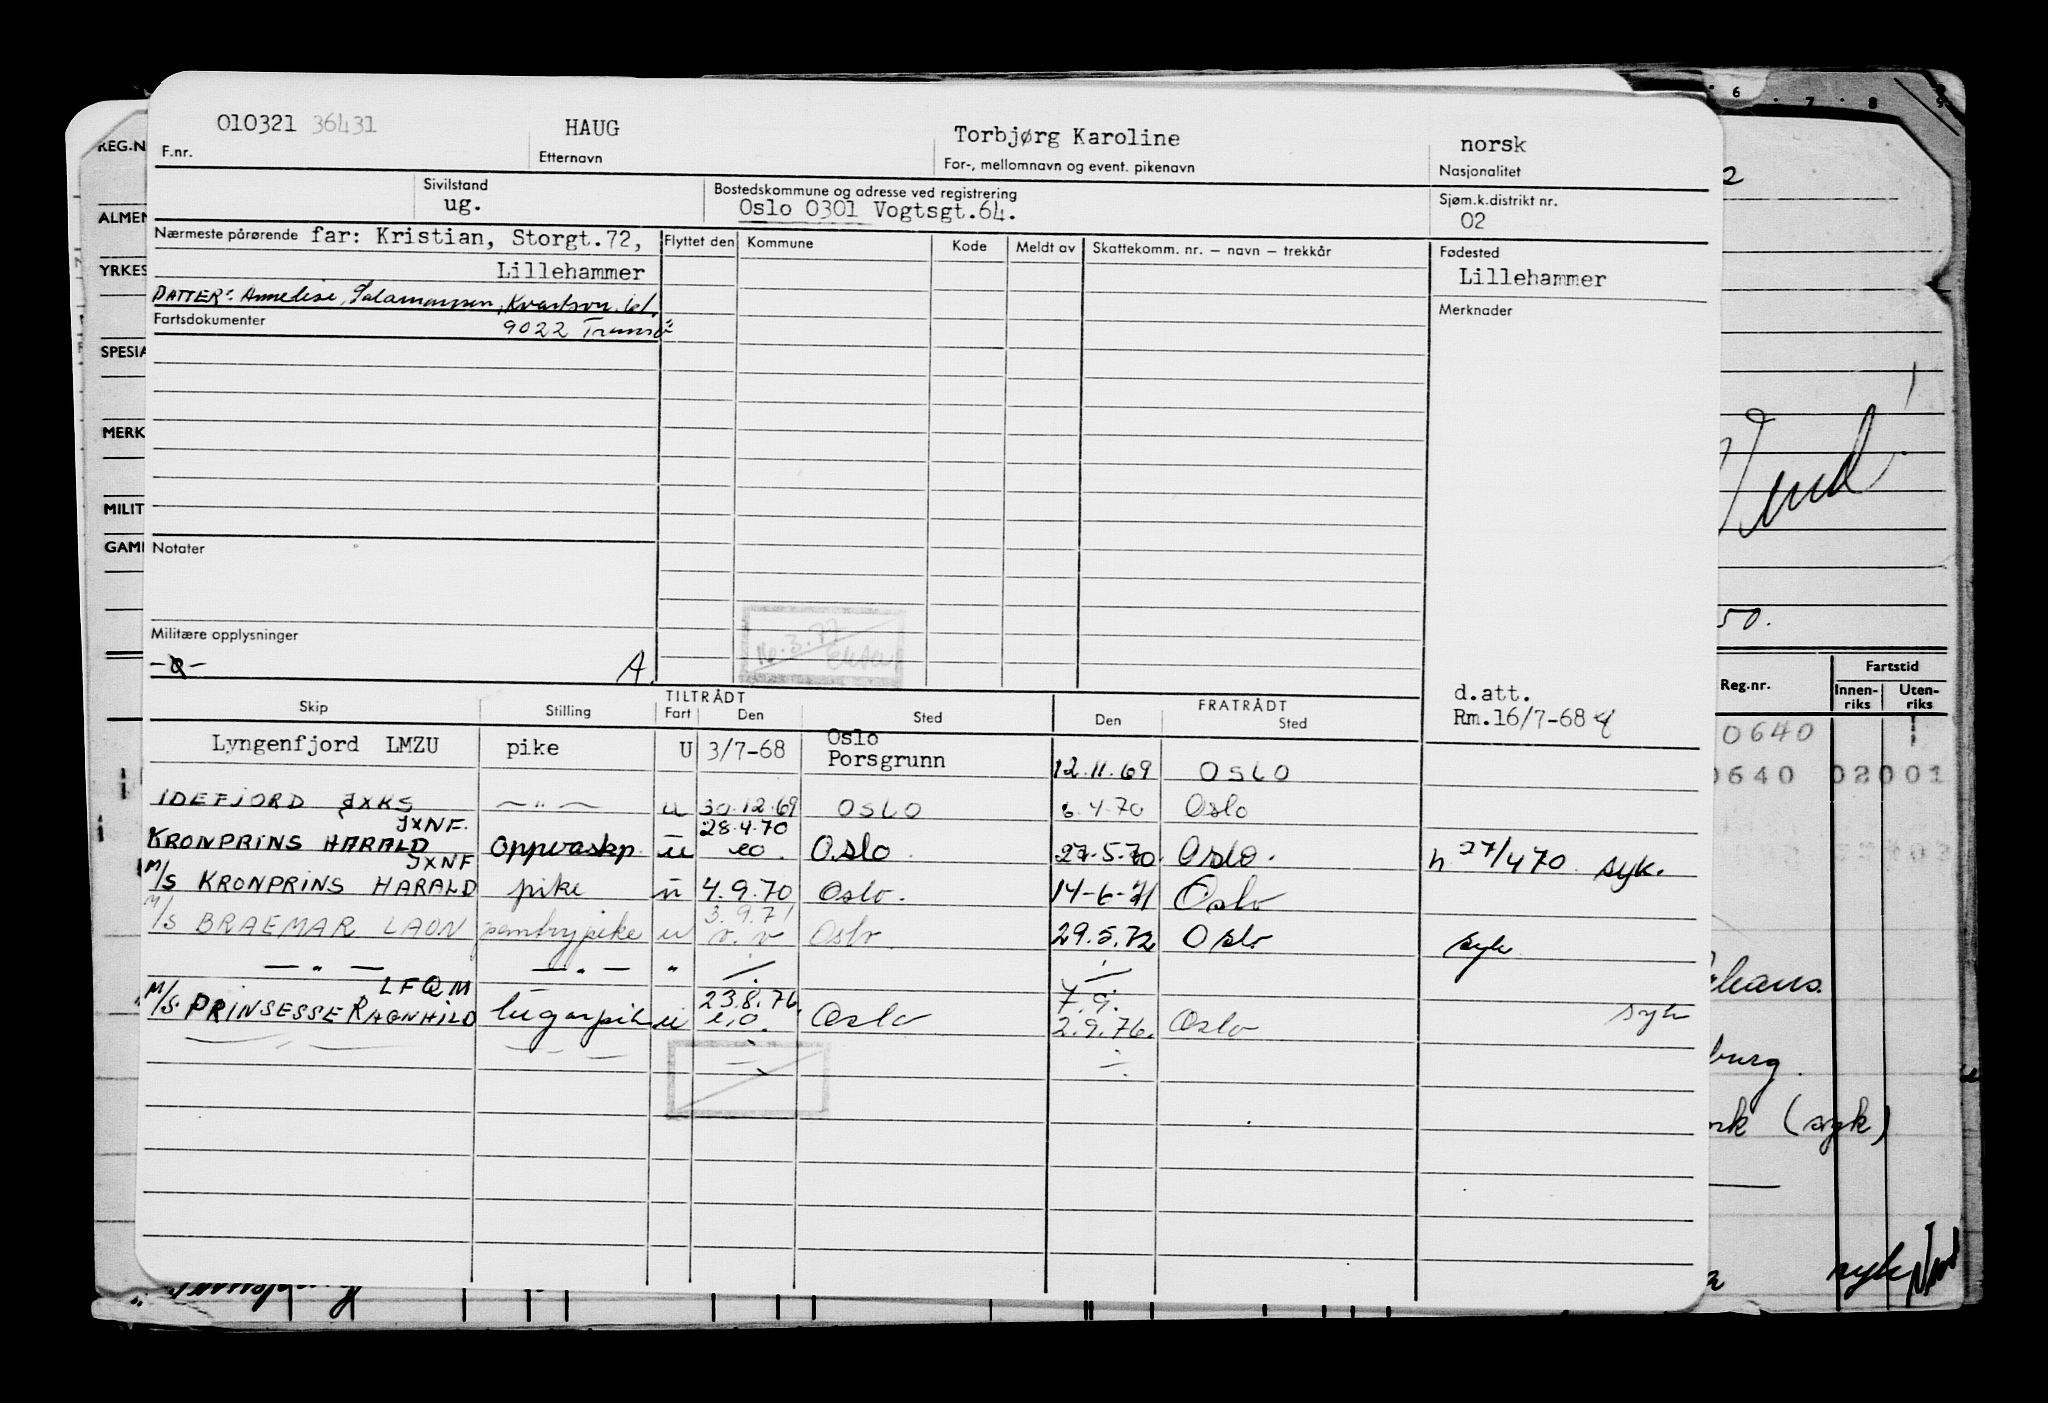 010321 36431 HAUG Torbjørg Karoline norsk
F.nr. Etternavn For-, mellomnavn og event. pikenavn Nasjonalitet
Sivilstand Bostedskommune og adresse ved registrering Sjøm.k.distrikt nr.
ug. Oslo 0301 Vogtsgt.64. 02
Nærmeste pårørende far: Kristian, Storgt.72, Flyttet den Kommune Kode Meldt av Skattekomm. nr. – navn – trekkår Fødested
Lillehammer Lillehammer
DATTER: Annelise, Salamonsen,
Fartsdokumenter 9022 Tromsø Merknader
Notater
Militære opplysninger
A.
TILTRÅDT FRATRÅDT d.att.
Skip Stilling Fart Den Sted Den Sted Rm.16/7-68
Lyngenfjord LMZU pike U 3/7-68 Oslo
Porsgrunn 12.11.69 OSLO
IDEFJORD JXKS —"— u 30.12.69 OSLO 6.4.70 Oslo
JXNF. 28.4.70
KRONPRINS HARALD oppvaskp u eo. Oslo. 27.5.70. Oslo. h 27/470 syk.
JXNF
M/S KRONPRINS HARALD pike u 4.9.70 Oslo. 14-6-71 Oslo
3.9.71
M/S BRAEMAR LAON pentrypike u Oslo 29.5.72 Oslo syk
—"— —"— "
LFQM 23.8.76. 7.9.
M/S. PRINSESSE RAGNHILD lugarpike u e.o. Oslo 2.9.76. Oslo syk
REG.N
ALMEN
YRKES
SPESIA
MERK
MILIT
GAM
6 7 8
50.
Fartstid
Reg.nr. Innen-riks Uten-riks
0640
0640 02001
burg.
(syk)
syk